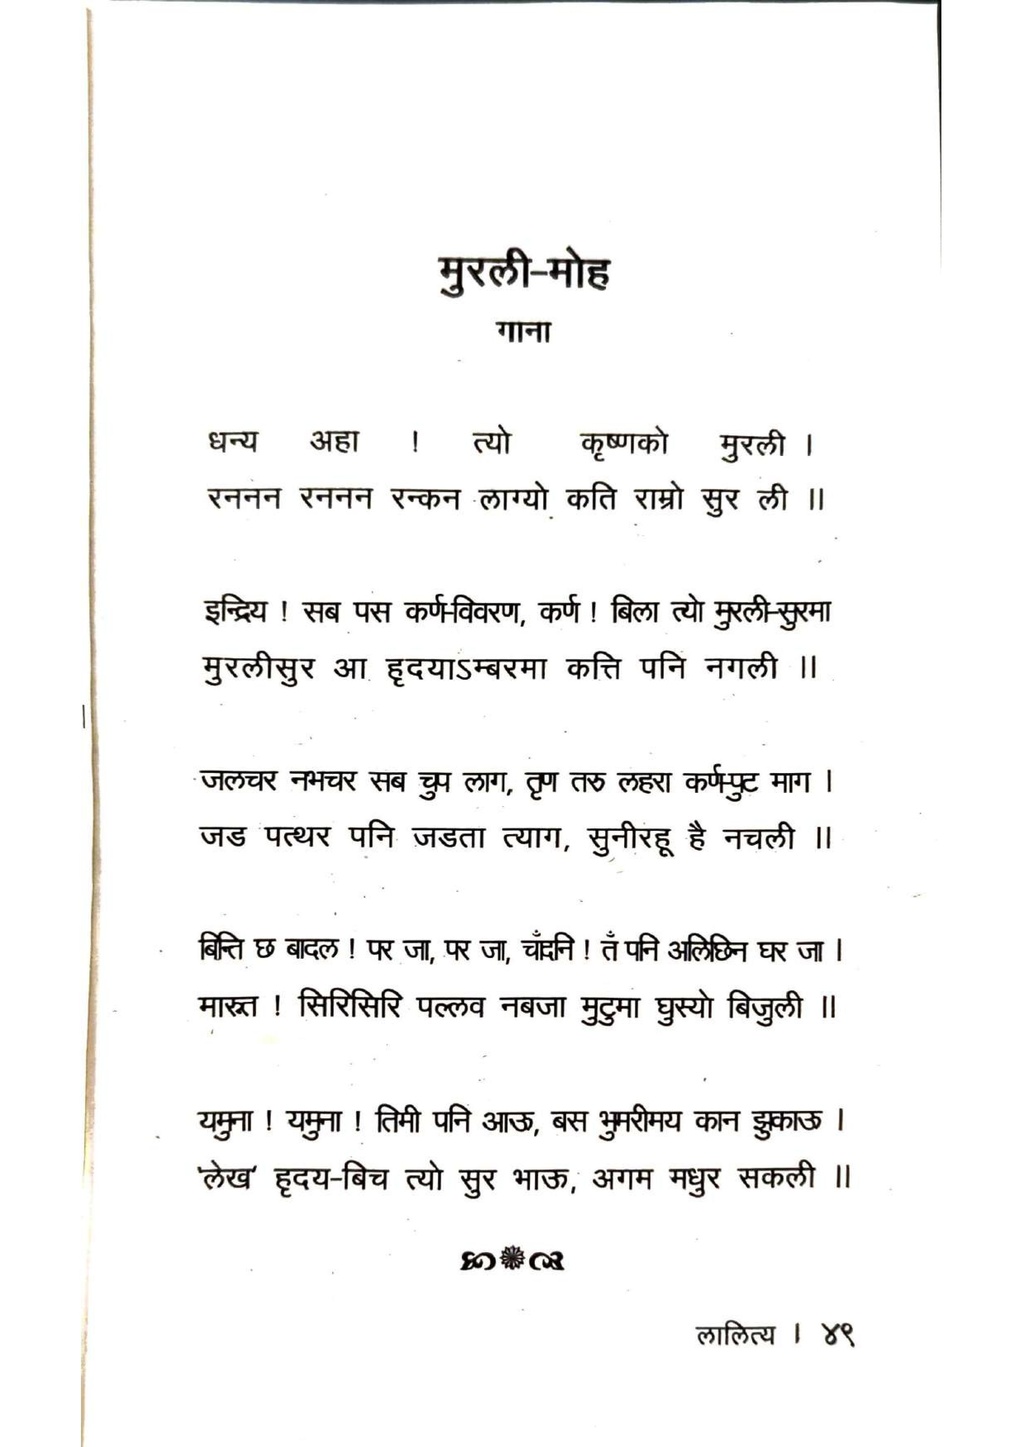 मुरली-मोह
गाना
धन्य अहा ! त्यो कृष्णको मुरली ।
रननन रननन रन्कन लाग्यो कति राम्रो सुर ली ॥
इन्द्रिय ! सब पस कर्ण-विवरण, कर्ण ! बिला त्यो मुरली-सुरमा
मुरलीसुर आ हृदयाऽम्बरमा कत्ति पनि नगली ॥
जलचर नभचर सब चुप लाग, तृण तरु लहरा कर्ण-पुट माग ।
जड पत्थर पनि जडता त्याग, सुनीरहू है नचली ॥
बिन्ति छ बादल ! पर जा, पर जा, चाँदनि ! तँ पनि अलिछिन घर जा ।
मारुत ! सिरिसिरि पल्लव नबजा मुटुमा घुस्यो बिजुली ॥
यमुना ! यमुना ! तिमी पनि आऊ, बस भुमरीमय कान झुकाऊ ।
'लेख' हृदय-बिच त्यो सुर भाऊ, अगम मधुर सकली ॥
लालित्य । ४९